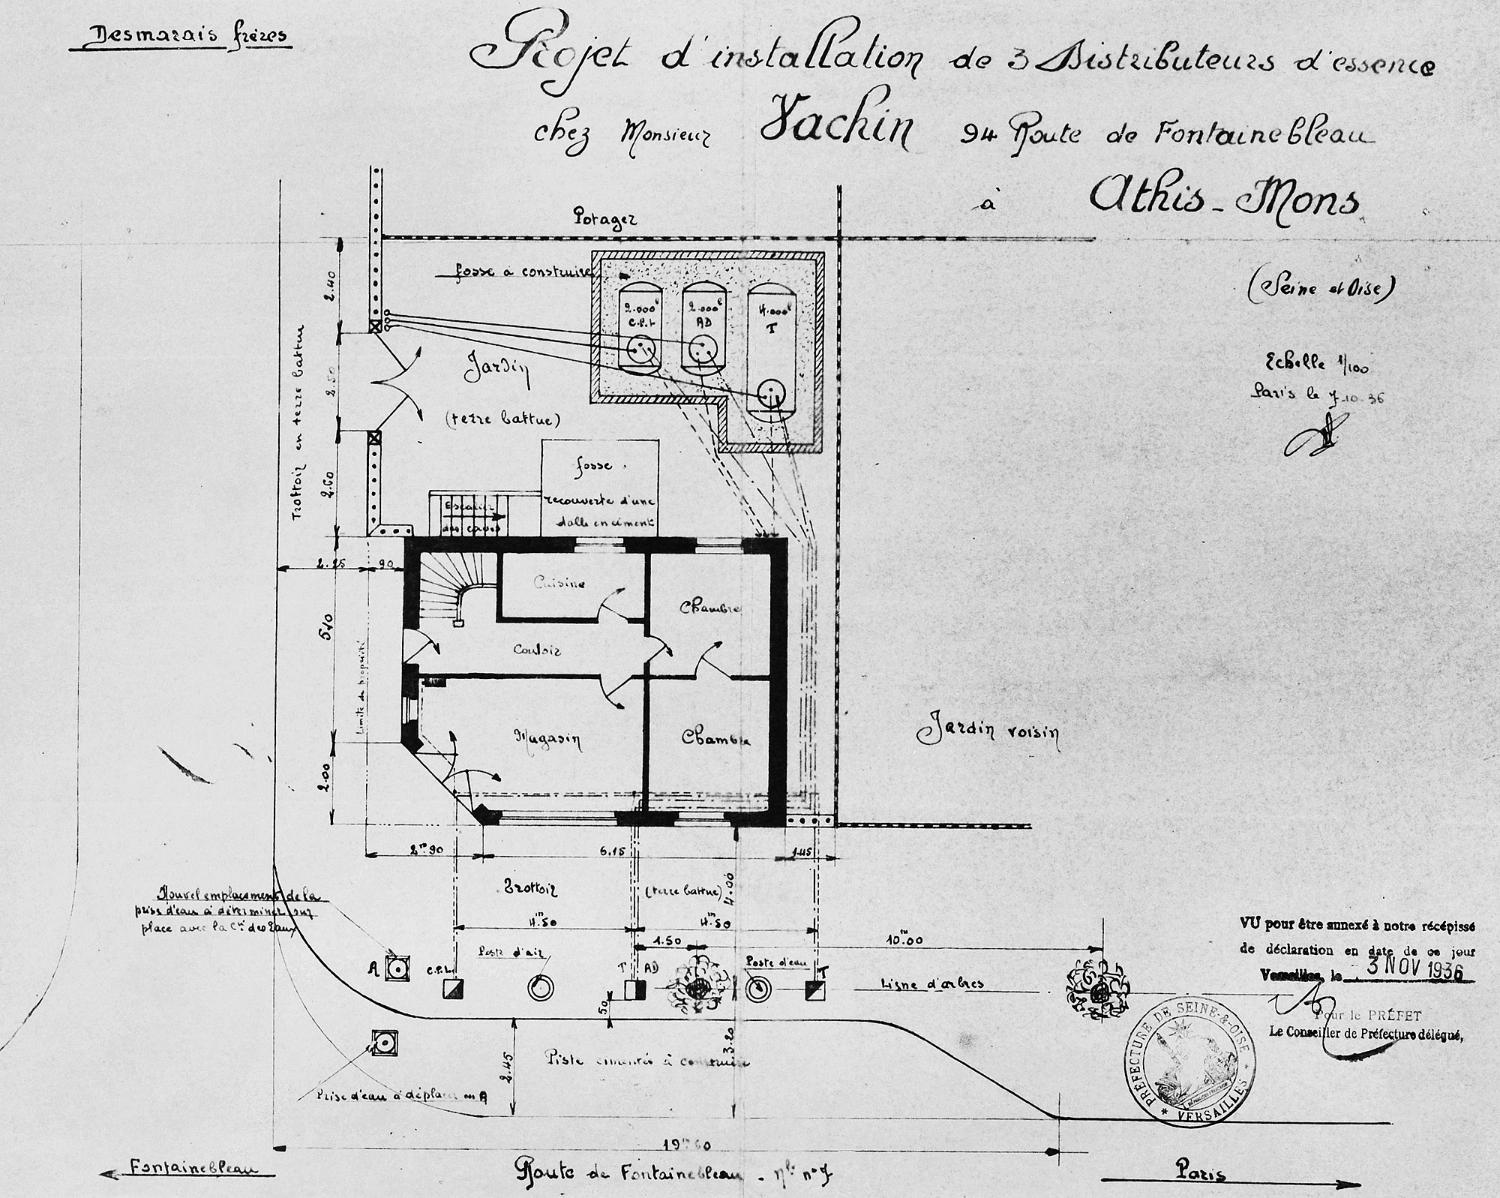 Desmarais frères
Projet d'installation de 3 Distributeurs d'essence
chez Monsieur Vachin 94 Route de Fontainebleau
à Athis-Mons
(Seine et Oise)
Echelle 1/100
Paris le 7.10.36
Potager
fosse a construire
2.000 l
C.P.L
2.000 l
AD
4.000 l
T
2.40
2.50
2.60
Trottoir en terre battue
Jardin
(terre battue)
fosse
recouverte d'une
dalle en ciment
Escalier
des caves
2.25
90
5.10
2.00
Limite de propriété
Cuisine
Chambre
Couloir
Magasin
Chambre
Jardin voisin
2m90
6.15
1.45
Trottoir
(terre battue)
4.00
4m50
4m50
1.50
10m00
Nouvel emplacement de la
prise d'eau à déterminer sur
place avec la Cie des Eaux
A
C.P.L
Poste d'air
T
AD
Poste d'eau
T
Ligne d'arbres
50
2.45
3.20
Piste cimentée à construire
Prise d'eau à déplacer en A
19m60
Fontainebleau
Route de Fontainebleau - Nle n°7
Paris
VU pour être annexé à notre récépissé
de déclaration en date de ce jour
Versailles, le 3 NOV 1936
Pour le PRÉFET
Le Conseiller de Préfecture délégué,
PRÉFECTURE DE SEINE-&-OISE
* VERSAILLES *